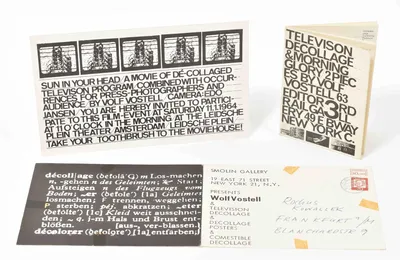 SUN IN YOUR HEAD/A MOVIE OF DÉ-COLLAGED
TELEVISON PROGRAM, COMBINED WITH OCCUR-
RENCES FOR PRESS PHOTOGRAPHERS AND
AUDIENCE. BY VOLF VOSTELL. CAMERA: EDO
JANSEN. YOU ARE HEREBY INVITED TO PARTICI-
PATE TO THIS FILM-EVENT AT SATURDAY 11.1.1964
AT 11 O'CLOCK IN THE MORNING AT THE LEIDSCHE
PLEIN THEATER AMSTERDAM LEIDSCHE PLEIN.
TAKE YOUR TOOTHBRUSH TO THE MOVIEHOUSE!
TELEVISION
DECOLLAGE
& MORNING
GLORY 2 PIEC
ES BY VOLF
VOSTELL 63
EDITOR 3RD
RAIL GALL
NEW YORK
décoll/age (defolā'G) n Los-machen
n, -gehen n des Geleimten; Start,
Aufsteigen n des Flugzeugs vom
Geleimten, F trennen, weggehen,
P sterben; pd. abkratzen;
ausschnei-
den; j-m Hals und Brust ent-
blößen. [aus, ver-blassen.]
décolorer [entfärben,]
SMOLIN GALLERY
19 EAST 71 STREET
NEW YORK 21, N.Y.
PRESENTS
Wolf Vostell
&
TELEVISION
DECOLLAGE
&
DECOLLAGE
POSTERS
&
COMESTIBLE
DECOLLAGE
FRANKFURT